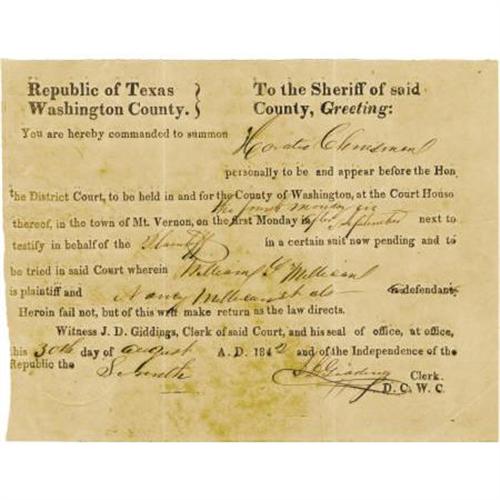 Republic of Texas
Washington County.
To the Sheriff of said
County, Greeting:
You are hereby commanded to summon
Horatio Chrisman
personally to be and appear before the Hon
the District Court, to be held in and for the County of Washington, at the Court House
the fourth Monday in
thereof, in the town of Mt. Vernon, on the first Monday in September next to
testify in behalf of the Plaintiff in a certain suit now pending and to
be tried in said Court wherein William G Millican
is plaintiff and Nancy Millican et als defendant
Heroin fail not, but of this writ make return as the law directs.
Witness J. D. Giddings, Clerk of said Court, and his seal of office, at office,
this 30th day of August A. D. 1842 and of the Independence of the
Republic the Seventh J D Giddings Clerk.
D. C. W. C.